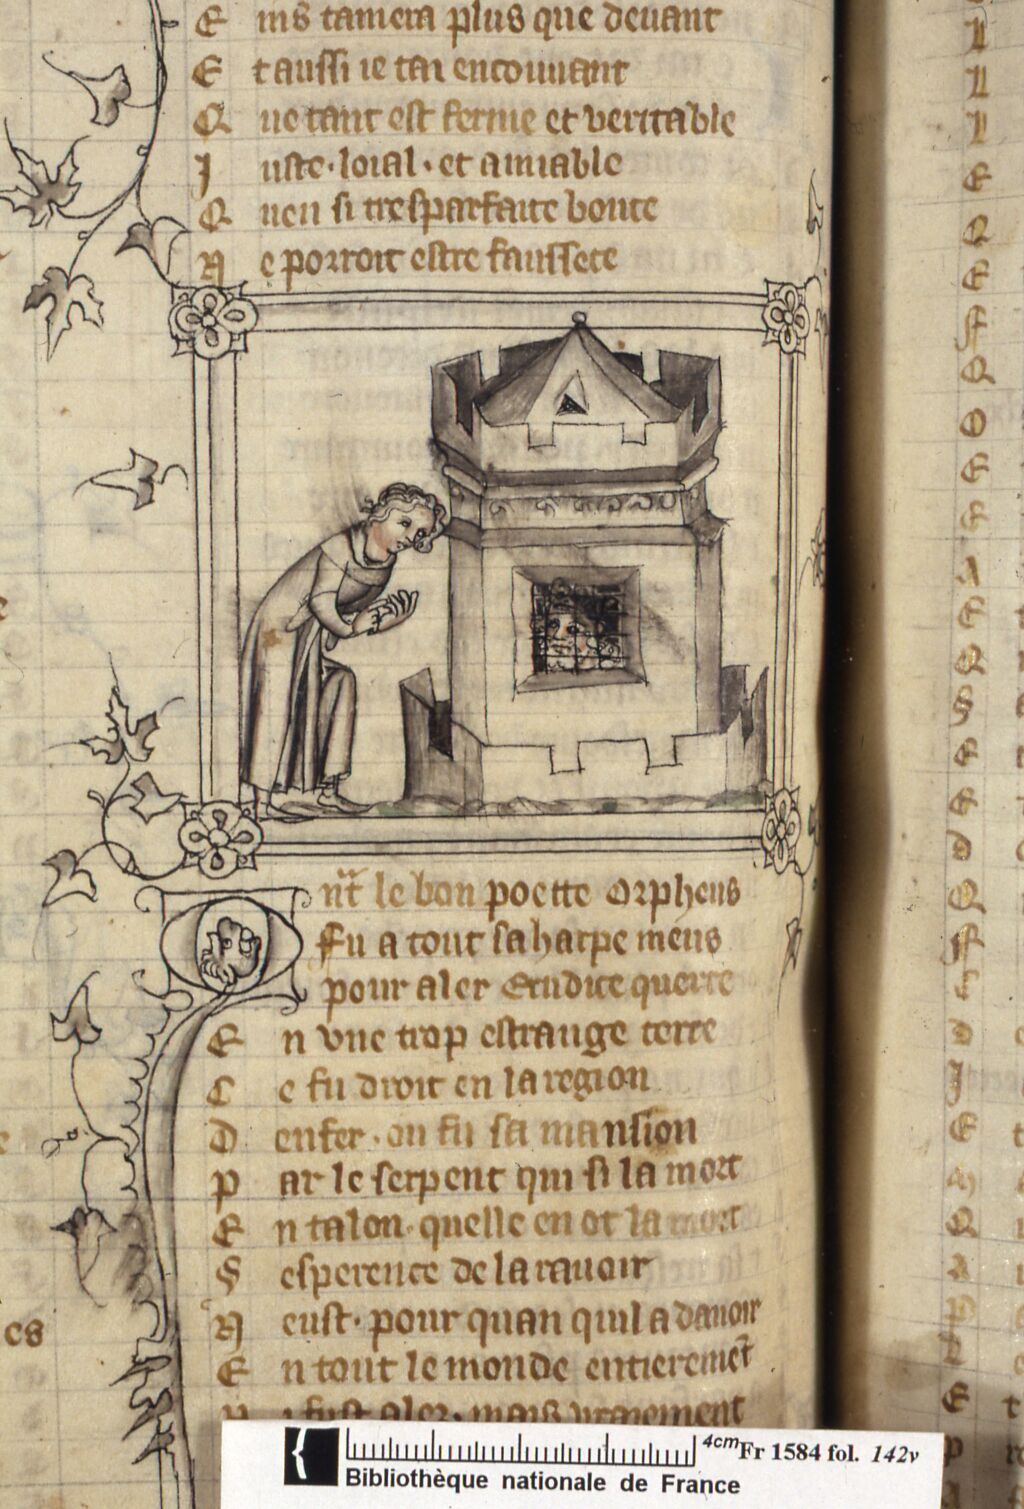 E ins tamera plus que deuant
E t aussi ie tai en couuant
Q ue tant est ferme et veritable
J uste · loial · et amiable
Q uen si tresparfaite bonte
N e porroit estre faussete
Q nt le bon poette Orpheus
Fu a tout sa harpe meus
pour aler Erudice querre
E n vne trop estrange terre
C e fu droit en la region
D enfer · ou fu sa mansion
P ar le serpent qui si la mort
E n talon · quelle en ot la mort
S esperence de la rauoir
N eust · pour quan quil a dauoir
E n tout le monde entieremet
i fust alez · mais vraiement
es
4cm Fr 1584 fol. 142v
Bibliothèque nationale de France